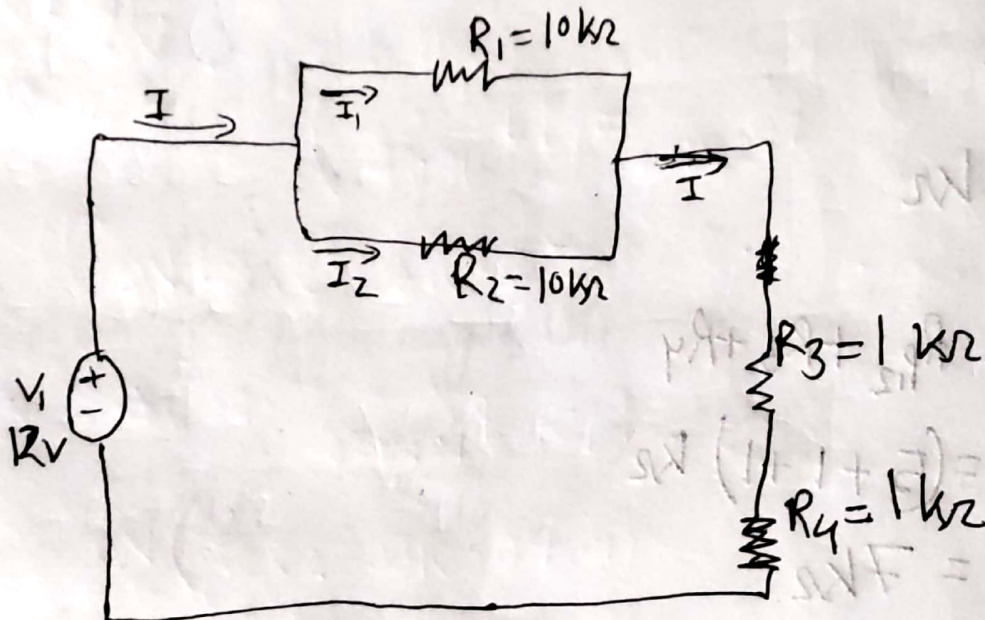 R1 = 10kΩ
I
I1
I
I2
R2 = 10kΩ
R3 = 1 kΩ
V1
+
−
12v
R4 = 1kΩ